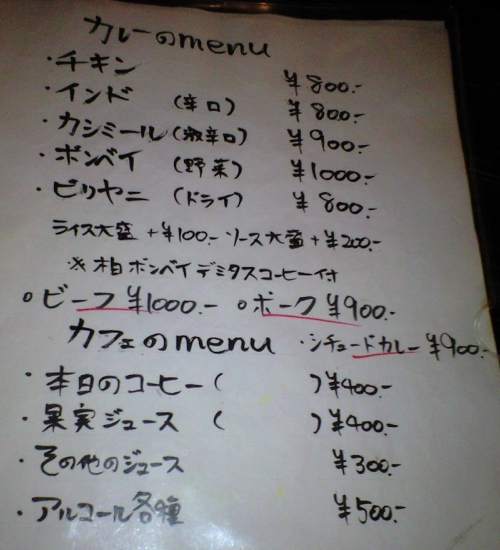 カレーのmenu
・チキン ¥800.-
・インド (辛口) ¥800.-
・カシミール(激辛口) ¥900.-
・ボンベイ (野菜) ¥1000.-
・ビリヤニ (ドライ) ¥800.-
ライス大盛 +¥100.- ソース大盛 +¥200.-
ボンベイ デミタスコーヒー付
○ビーフ ¥1000.- ○ポーク ¥900.-
カフェのmenu ・シチュードカレー ¥900.-
・本日のコーヒー( )¥400.-
・果実ジュース ( )¥400.-
・その他のジュース ¥300.-
・アルコール各種 ¥500.-